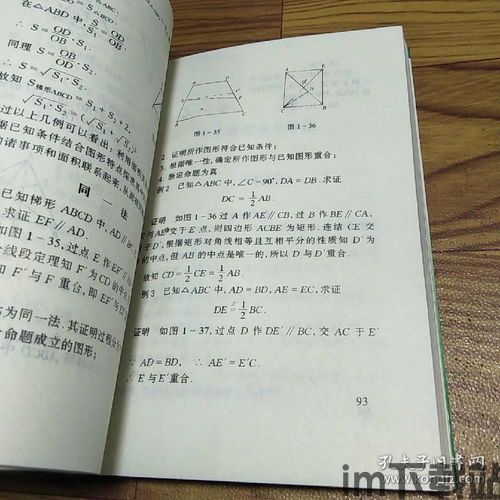 在△ABD 中,
同理 S =
S₁·S₂.
故知 S梯形ABCD = S₁ + S₂ +
过以上几例可以看出,利用
据已知条件结合图形将
的诸事项和面积联系起来,
同 一 法
已知梯形 ABCD 中, AD∥
求证 EF∥AD.
1-35, 过点 E 作 EF′
线段定理知 F′为 CD 的
知 F′与 F 重合, 即 EF
为同一法.其证明过程
命题成立的图形;
图 1-35
图 1-36
2. 证明所作图形符合已知条件;
3. 根据唯一性,确定所作图形与已知图形重合;
断定命题为真.
例 2 已知△ABC 中, ∠C=90°, DA=DB. 求证
DC = 1/2 AB.
证明 如图 1-36 过 A 作 AE∥CB, 过 B 作 BE∥CA,
交于 E 点, 则四边形 ACBE 为矩形. 连结 CE 交
于 D′, 根据矩形对角线相等且互相平分的性质知 D′为
的中点, 但 AB 的中点是唯一的, 所以 D 与 D′重合.
故知 CD = 1/2 CE = 1/2 AB.
例 3 已知△ABC 中, AD=BD, AE=EC, 求证
DE = 1/2 BC.
证明 如图 1-37, 过点 D 作 DE′∥BC, 交 AC 于 E′
∵ AD=BD, ∴ AE′=E′C.
∴ E 与 E′重合.
93
孔夫子旧书网
www.kongfz.com
im下载站